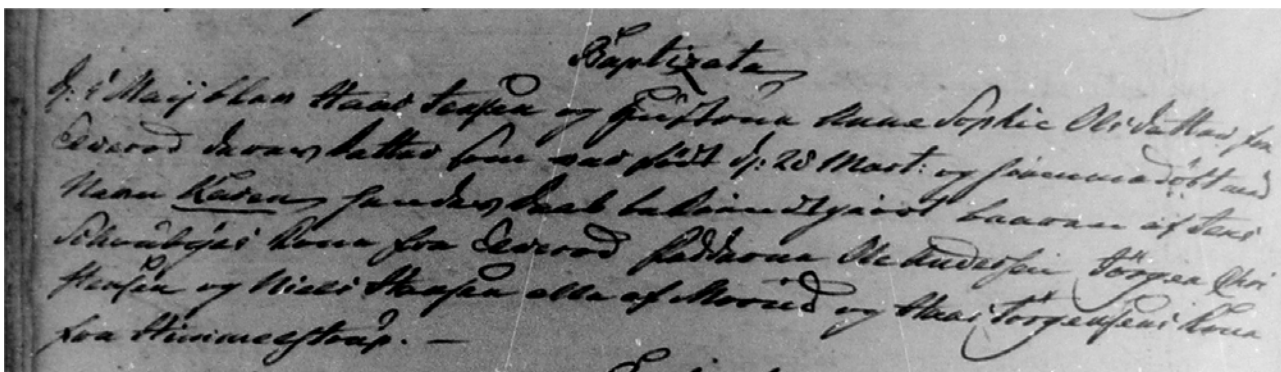 Baptizata
d: 4 Maij blev Hans Jensen og Hustrue Anne Sophie Olsdatter fra
Leverod deres datter som var född d: 28 Mart: og hiemmedöbt med
Navn Karen hendes Daab bekiendtgiort baaren af Jens
kone fra Leverod fadderne Ole Andersen Jörgen Chri
stensen og Niels Hansen alle af og Hans Jörgensens kone
fra Himmelstrup. —